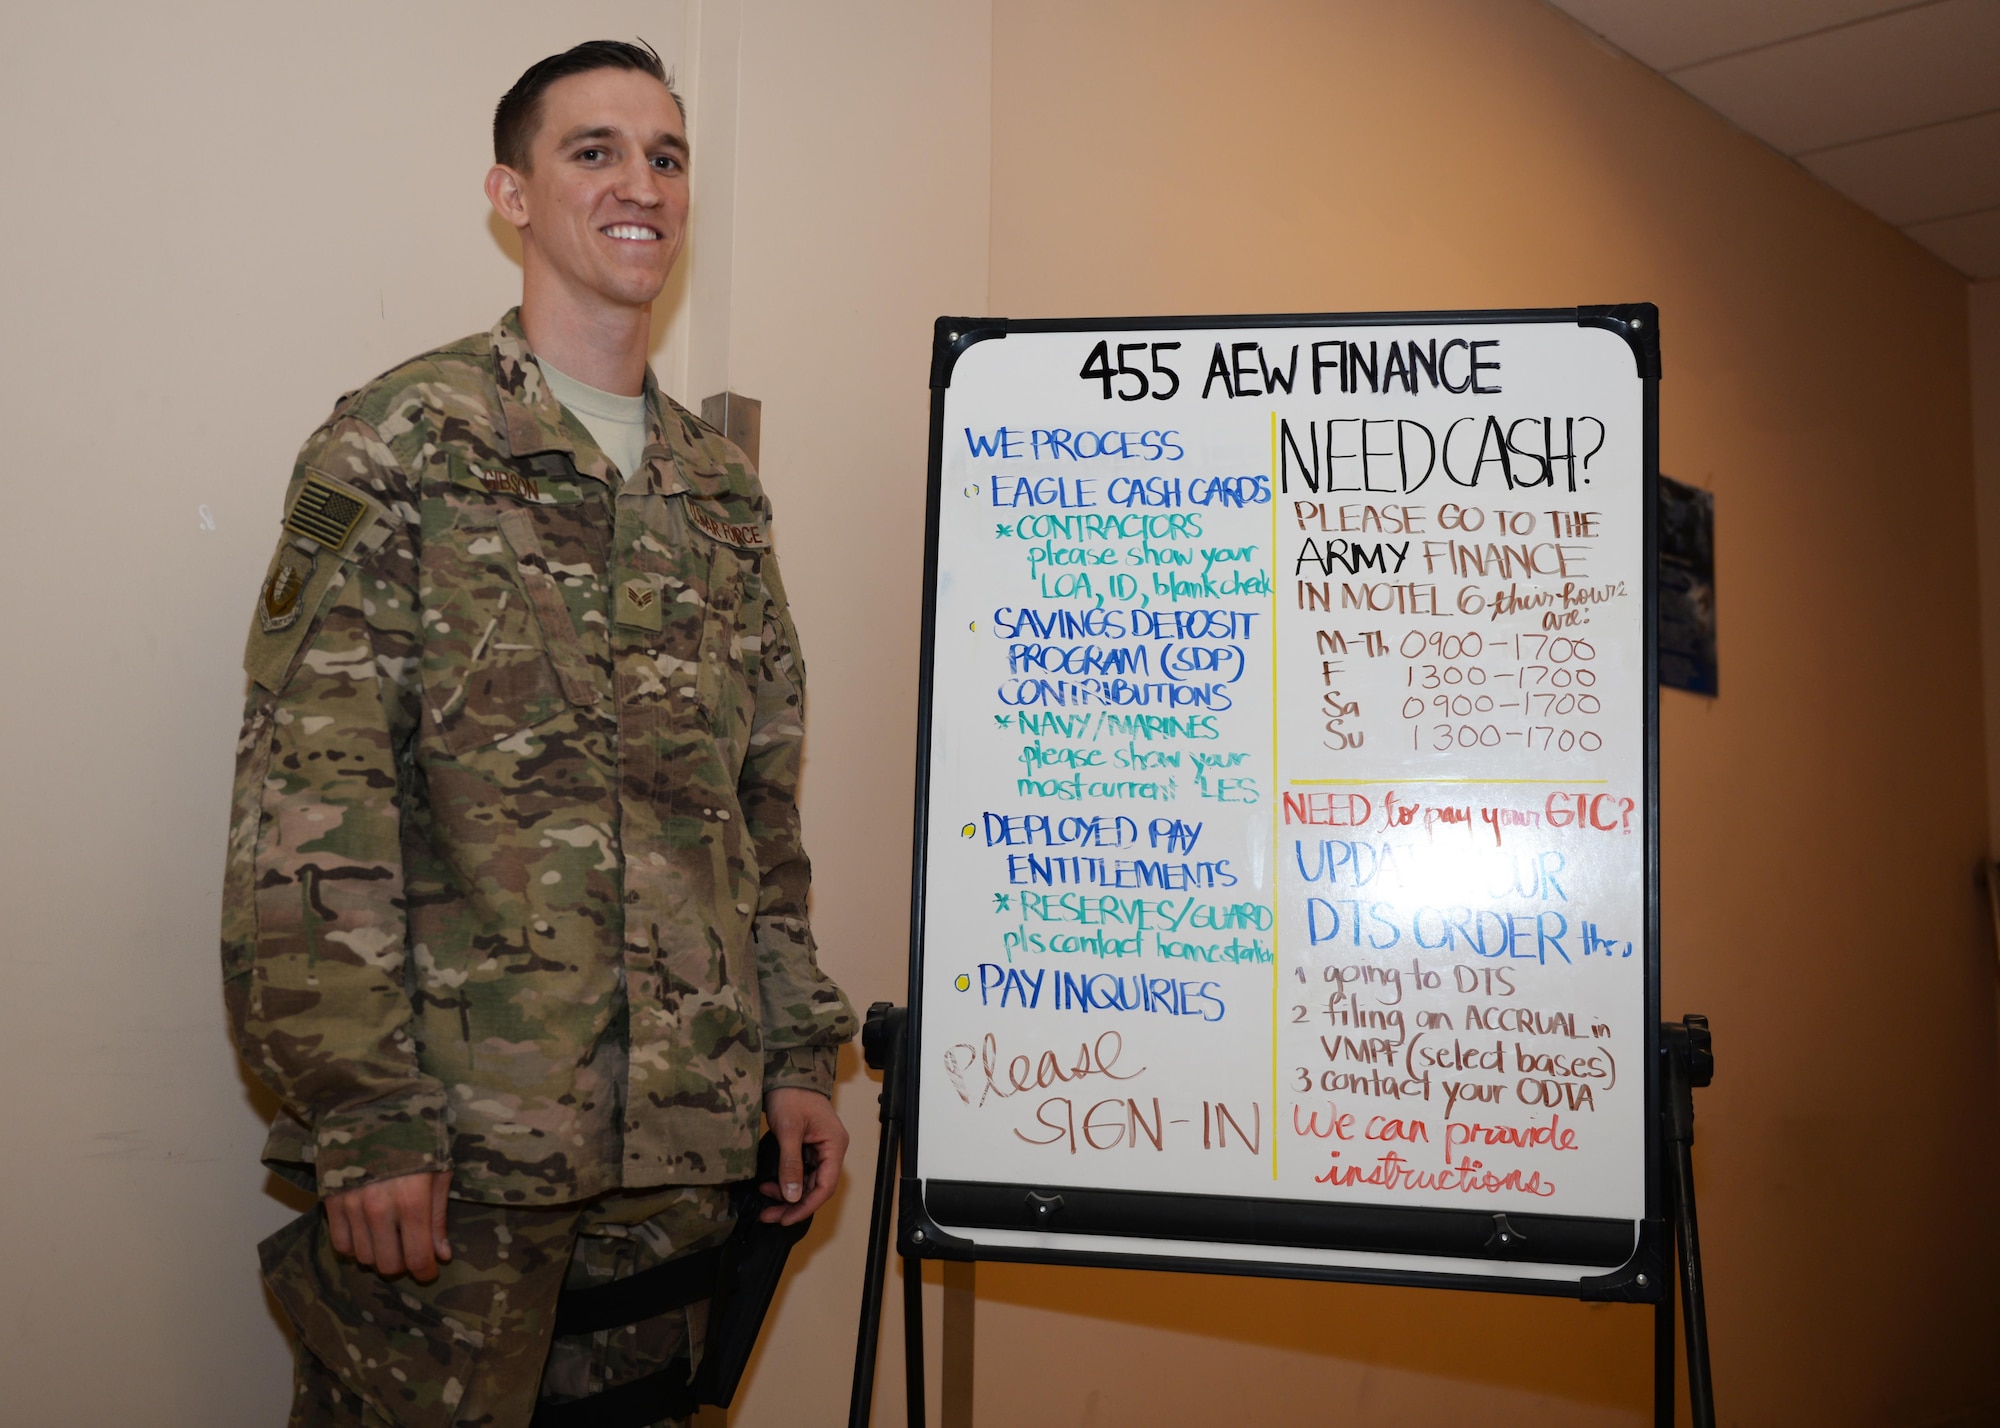 GIBSON
U.S. AIR FORCE
455 AEW FINANCE
WE PROCESS
EAGLE CASH CARDS
* CONTRACTORS
please show your
LOA, ID, blank check
SAVINGS DEPOSIT
PROGRAM (SDP)
CONTRIBUTIONS
* NAVY/MARINES
please show your
most current LES
DEPLOYED PAY
ENTITLEMENTS
* RESERVES/GUARD
pls contact home station
PAY INQUIRIES
Please
SIGN-IN
NEED CASH?
PLEASE GO TO THE
ARMY FINANCE
IN MOTEL 6 their hours
are:
M-Th 0900-1700
F 1300-1700
Sa 0900-1700
Su 1300-1700
NEED to pay your GTC?
UPDATE YOUR
DTS ORDER thru
1 going to DTS
2 filing an ACCRUAL in
VMPF (select bases)
3 contact your ODTA
We can provide
instructions